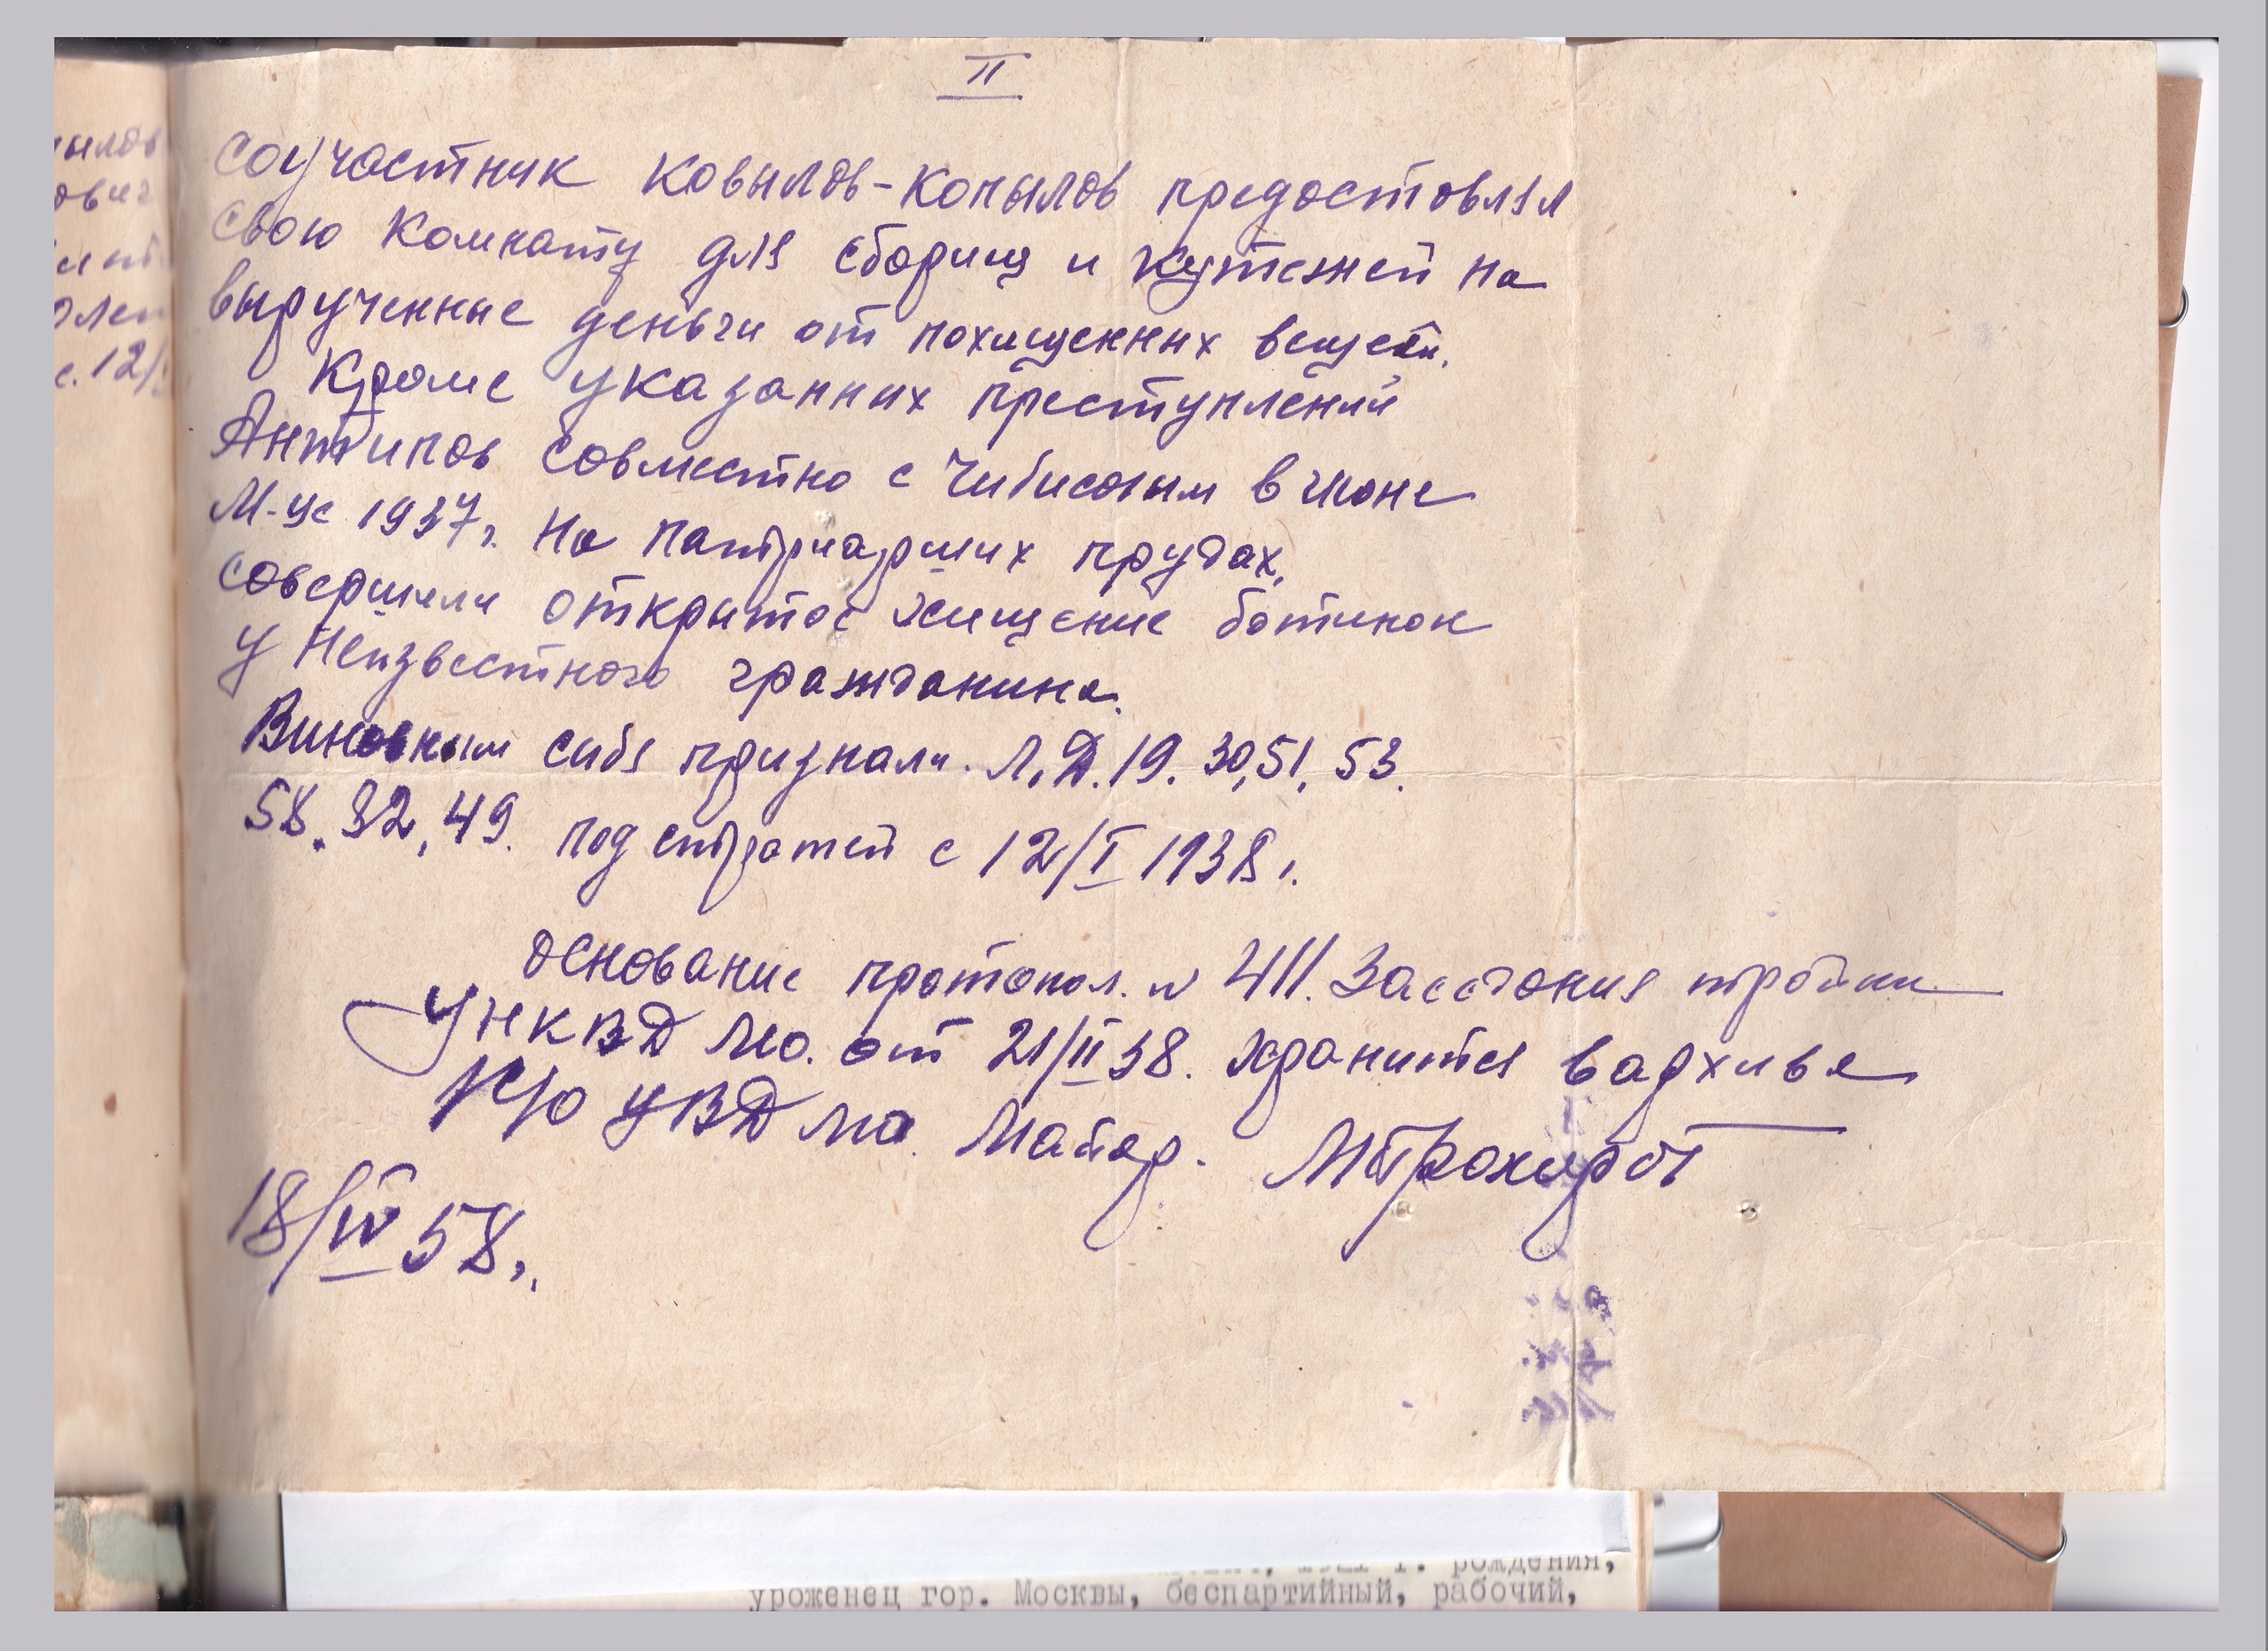 II
соучастник Ковылов-Копылов предоставлял
свою комнату для сборищ и кутежей на
вырученные деньги от похищенных вещей.
Кроме указанных преступлений
Антипов совместно с Чибисовым в июне
м-це 1937г. на Патриарших прудах,
совершили открытое хищение ботинок
у неизвестного гражданина.
Виновным себя признали. Л.Д.19. 30,51, 53.
58. 32, 49. под стражей с 12/I 1938г.
основание протокол. N 411. Заседания тройки
УНКВД МО. от 21/II 38. хранится в архиве
УВД МО. Майор.
18/IV 58г.
ылов
ович
олет
с. 12/
г. рождения,
уроженец гор. Москвы, беспартийный, рабочий,